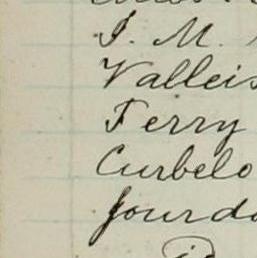 J. M.
Valleis
Ferry
Curbelo
Jourda